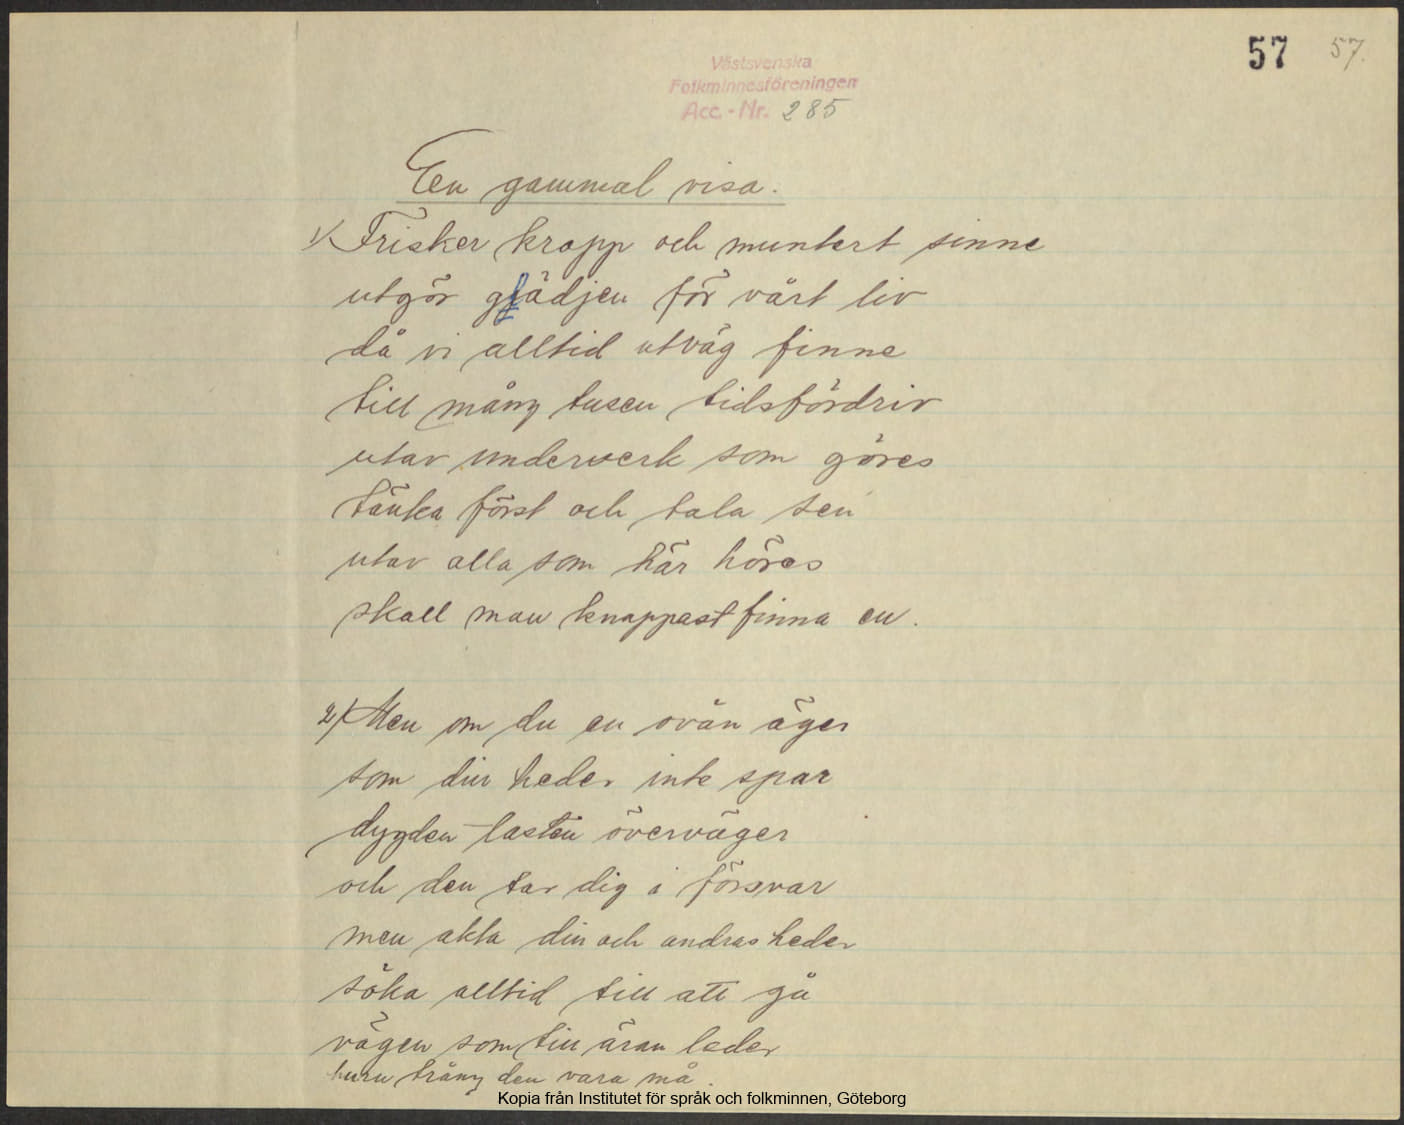 57 57.
Västsvenska
Folkminnesföreningen
Acc.-Nr. 285
En gammal visa.
1/ Frisker kropp och muntert sinne
utgör glädjen för vårt liv
då vi alltid utväg finne
till mång tusen tidsfördriv
utav underverk som göres
tänka först och tala sen
utav alla som här höres
skall man knappast finna en.
2/ Men om du en ovän äger
som din heder inte spar
dygden lasten överväger
och den tar dig i försvar
men akta din och andras heder
söka alltid till att gå
vägen som till äran leder
huru trång den vara må.
Kopia från Institutet för språk och folkminnen, Göteborg